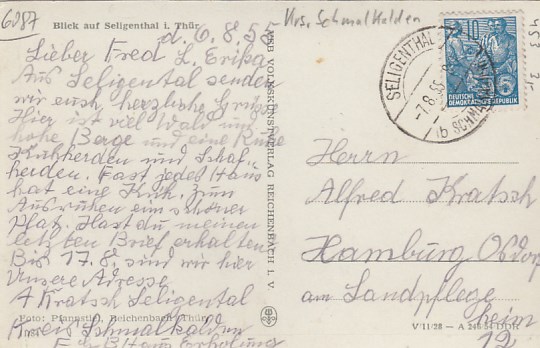 6287
Blick auf Seligenthal i. Thür.
Krs. Schmalkalden
d. 6.8.55
Lieber Fred u. Erika
Aus Seligental senden
wir euch herzliche Grüsse
Hier ist viel Wald und
hohe Berge und eine Ruhe
Kuhherden und Schaf-
herden. Fast jedes Haus
hat eine Kuh. Zum
Ausruhen ein schöner
Platz. Hast du meinen
letzten Brief erhalten
Bis 17.8. sind wir hier
Unsere Adresse
A Kratsch Seligental
Foto: Pfannstiel, Reichenbach/Thür.
Kreis Schmalkalden
Erholung
VOLKSKUNSTVERLAG REICHENBACH I. V.
SELIGENTHAL
-7.8.55
(b SCHMALKALDEN)
10
5
DEUTSCHE
DEMOKRATISCHE REPUBLIK
Herrn
Alfred Kratsch
Hamburg Osdorf
am Landpflege
heim
12
V/11/28 — A 248/54 DDR